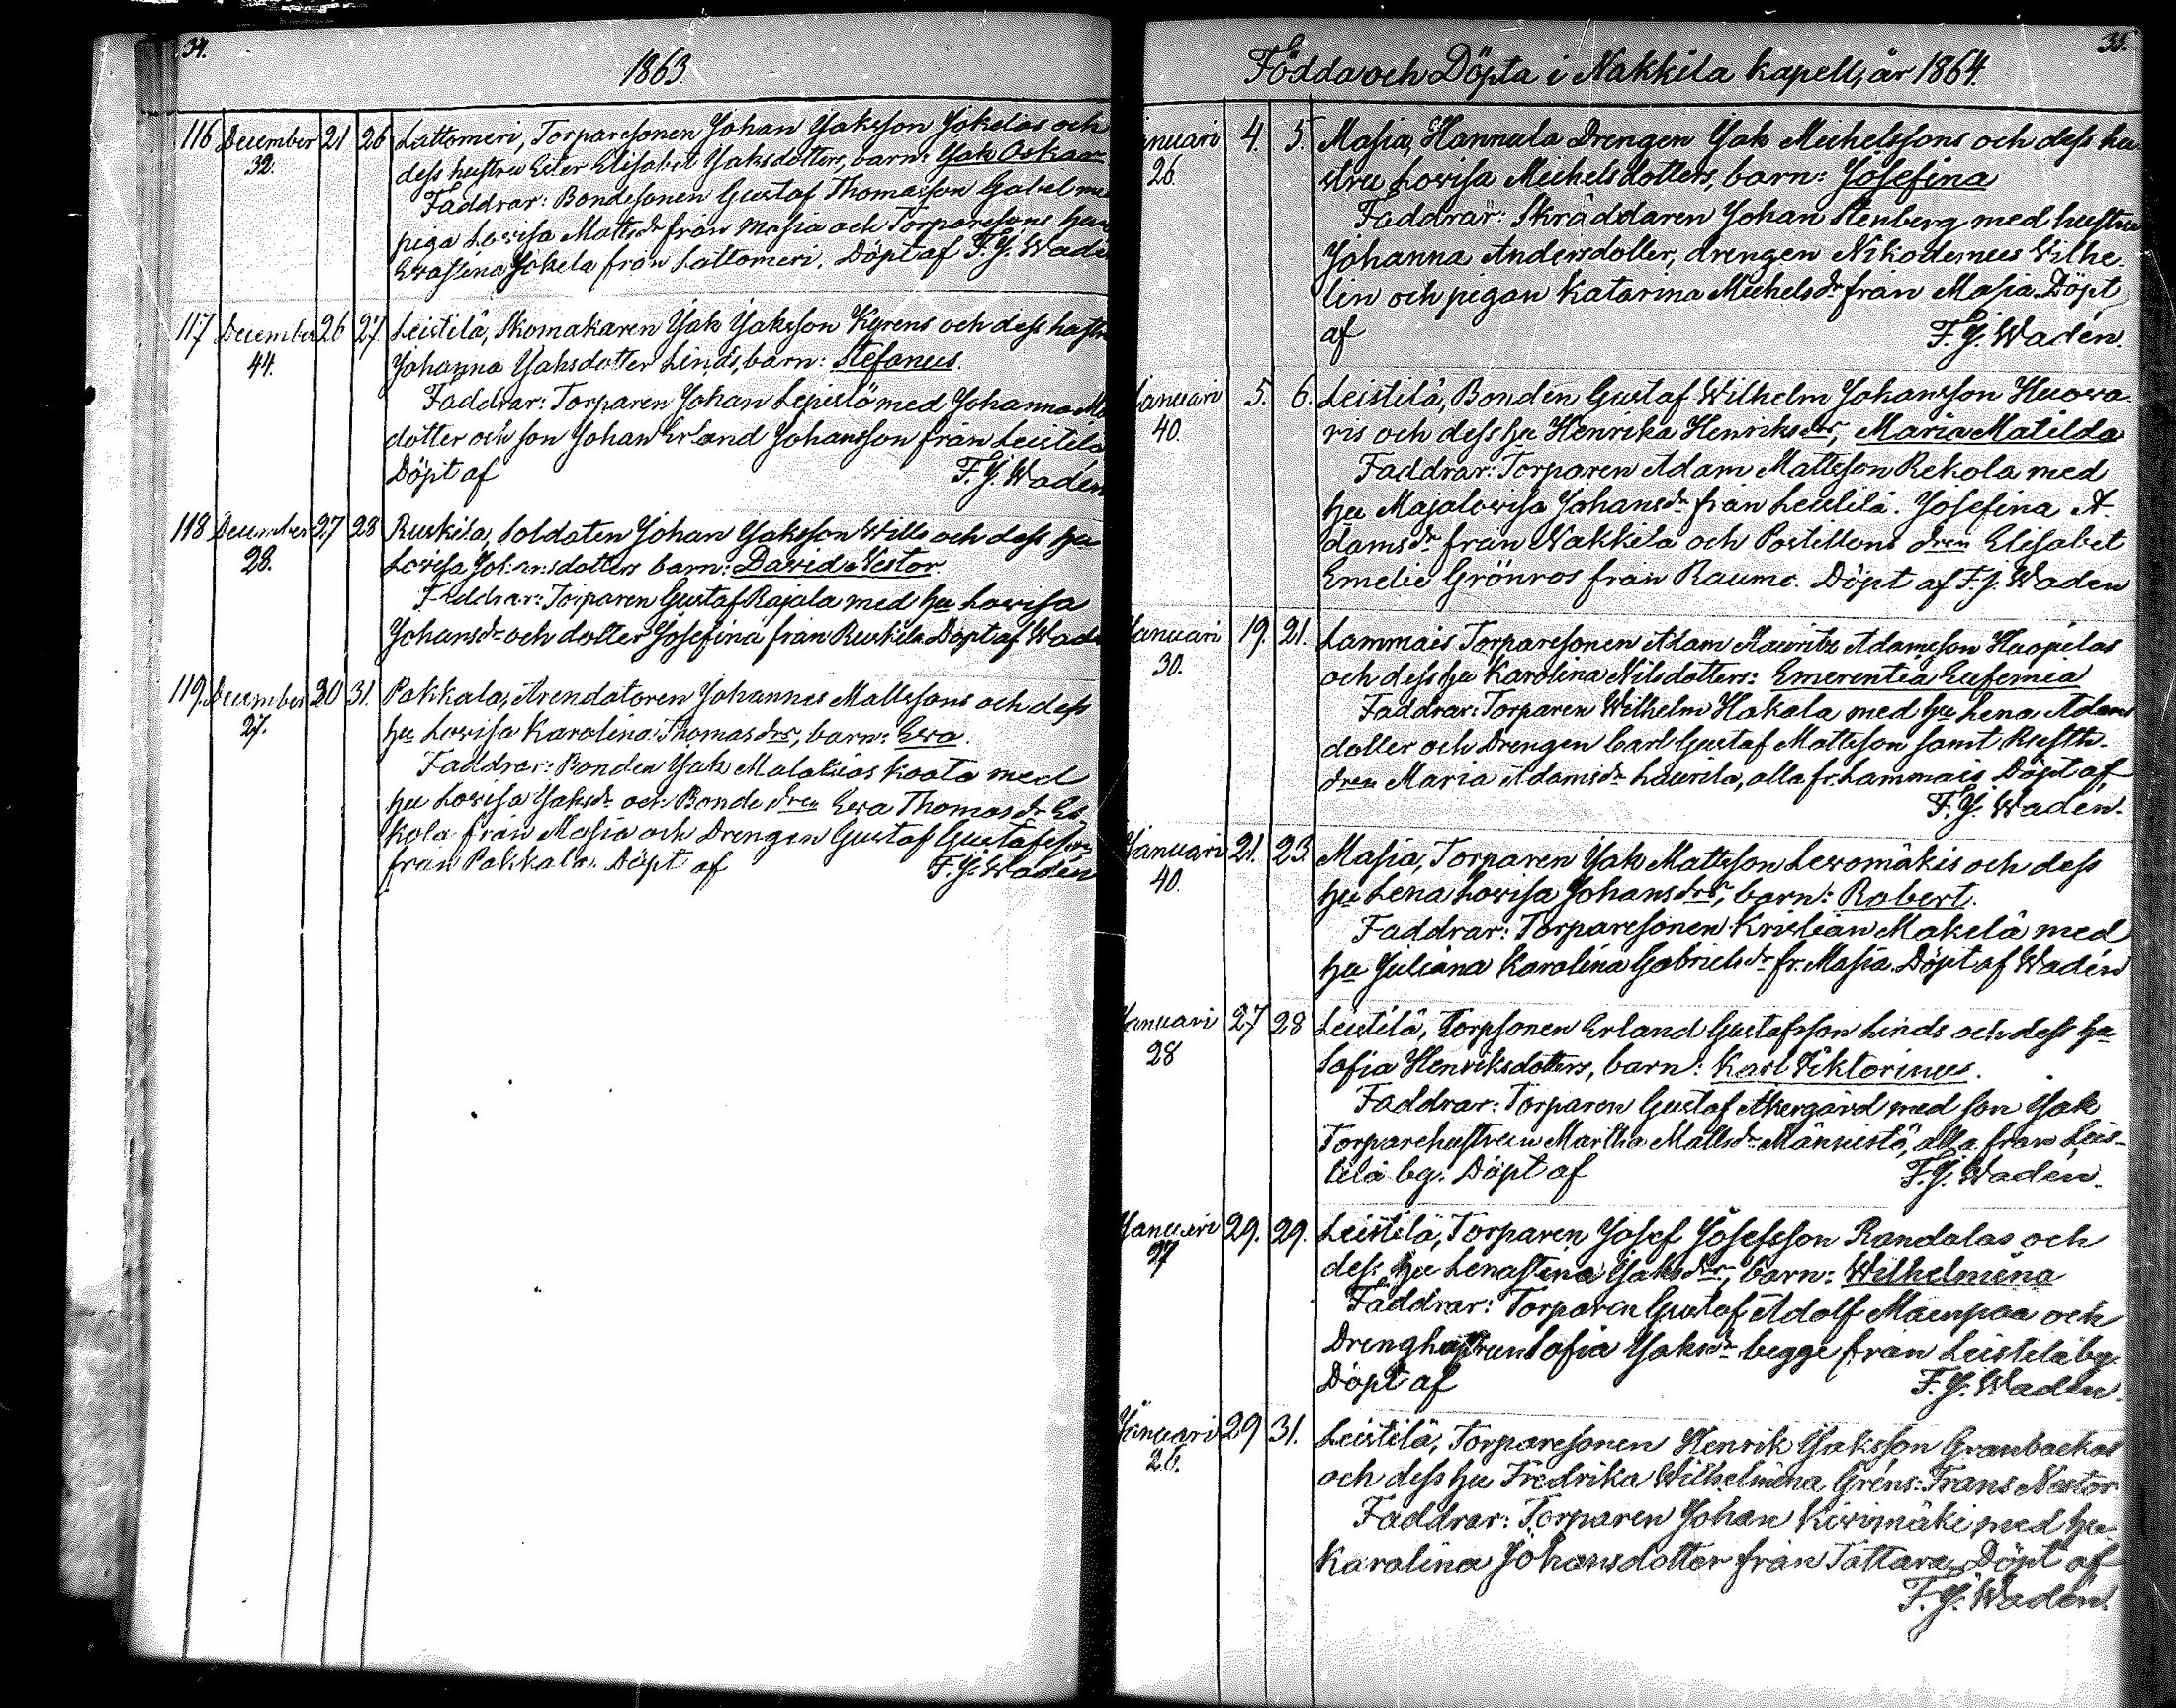 34.
1863
116 December 21 26 Lattomeri, Torparesonen Johan Jaksson Jokelas och
32. dess hustru Ester Elisabet Jaksdotters, barn: Jak Oskar
Faddrar: Bondesonen Gustaf Thomasson Gabel
piga Lovisa Mattsdr från Masia och Torparesons
Evastina Jokela från Lattomeri. Döpt af F.J. Wadé
117 December 26 27 Leistilä, Skomakaren Jak Jaksson Kyrens och dess hustru
44. Johanna Jaksdotter Linds, barn: Stefanus.
Faddrar: Torparen Johan Lepistö med Johanna
dotter och son Johan Erland Johansson från Leistilä
Döpt af F.J. Wadén
118 December 27 28 Ruskila, Soldaten Johan Jaksson Wills och dess hu
28. Lovisa Johansdotters barn: David Nestor.
Faddrar: Torparen Gustaf Rajala med hu Lovisa
Johansdr och dotter Josefina från Ruskila Döpt af Wadé
119. December 30 31. Pakkala, Arendatoren Johannes Mattssons och dess
27. hu Lovisa Karolina Thomasdrs, barn: Eva.
Faddrar: Bonden Jak Malakias Kaata med
hu Lovisa Jaksdr och Bonde dren Eva Thomasdr Es
kola från Masia och Drengen Gustaf Gustafsson
från Pakkala. Döpt af F.J. Wadén
35.
Födda och Döpta i Nakkila kapell, år 1864.
Januari 4. 5. Masia, Hannula Drengen Jak Michelssons och dess hu
26. stru Lovisa Michelsdotters, barn: Josefina
Faddrar: Skräddaren Johan Stenberg med hustru
Johanna Andersdotter, drengen Nikodemus Wilhe-
lin och pigan Katarina Michelsdr från Masia. Döpt
af F.J. Wadén.
Januari 5. 6. Leistilä, Bonden Gustaf Wilhelm Johansson Huova-
40. ris och dess hu Henrika Henriksdrs, Maria Matilda
Faddrar: Torparen Adam Mattsson Rekola med
hu Majalovisa Johansdr från Leistilä. Josefina A-
damsdr från Nakkila och Postillons dren Elisabet
Emelie Grönros från Raumo. Döpt af F.J. Wadén
Januari 19. 21. Lammais Torparesonen Adam Mauritz Adamsson Haapelas
30. och dess hu Karolina Nilsdotters: Emerentia Eufemia
Faddrar: Torparen Wilhelm Hakala med hu Lena Adams
dotter och Drengen Carl Gustaf Mattsson samt
dren Maria Adamsdr Laurila, alla fr. Lammais Döpt af
F.J. Wadén.
Januari 21. 23 Masia, Torparen Jak Mattsson Levomäkis och dess
40. hu Lena Lovisa Johansdrs, barn: Robert.
Faddrar: Torparesonen Kristian Makelä med
hu Juliana Karolina Gabrielsdr fr. Masia. Döpt af Wadén
Januari 27 28 Leistilä, Torpsonen Erland Gustafsson Linds och dess hu
28 Sofia Henriksdotters, barn: Karl Viktorinus.
Faddrar: Torparen Gustaf Åkergård med son Jak
Torparehustrun Martha Mattsdr Männistö, alla från Leis-
tilä by. Döpt af F.J. Wadén.
Januari 29. 29. Leistilä, Torparen Josef Josefsson Randalas och
27 dess hu Lenastina Jaksdrs, barn: Wilhelmina
Faddrar: Torparen Gustaf Adolf Maunpaa och
Drenghustrun Sofia Jaksdr begge från Leistilä by.
Döpt af F.J. Wadén.
Januari 29 31. Leistilä, Torparesonen Henrik Jaksson Granbackas
26. och dess hu Fredrika Wilhelmina Gréns: Frans Nestor
Faddrar: Torparen Johan Kivimäki med hu
Karolina Johansdotter från Tattara, Döpt af
F.J. Wadén.